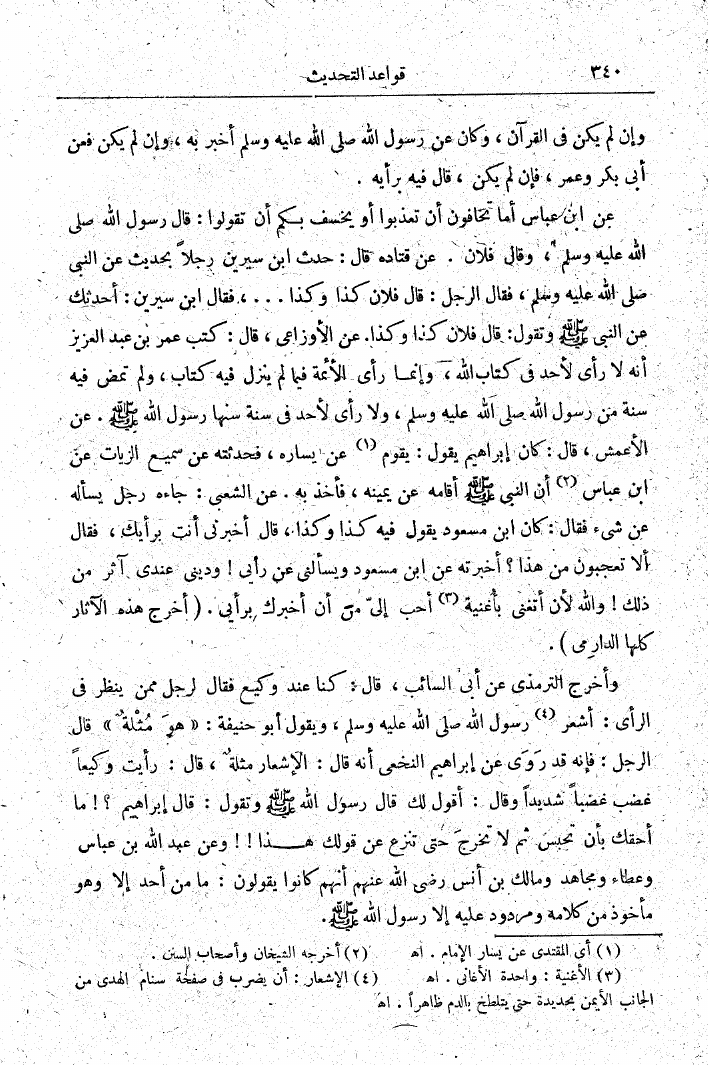 ٣٤٠ قواعد التحديث
وإن لم يكن فى القرآن ، وكان عن رسول الله صلى الله عليه وسلم أخبر به ، وإن لم يكن فمن
أبى بكر وعمر ، فإن لم يكن ، قال فيه برأيه .
عن ابن عباس أما تخافون أن تعذبوا أو يخسف بكم أن تقولوا : قال رسول الله صلى
الله عليه وسلم ، وقال فلان . عن قتاده قال : حدث ابن سيرين رجلاً بحديث عن النبي
صلى الله عليه وسلم ، فقال الرجل : قال فلان كذا وكذا . . . ، فقال ابن سيرين : أحدثك
عن النبي ﷺ وتقول : قال فلان كذا وكذا. عن الأوزاعى ، قال : كتب عمر بن عبد العزيز
أنه لا رأى لأحد فى كتاب الله ، وإنما رأى الأئمة فيما لم ينزل فيه كتاب ، ولم تمض فيه
سنة من رسول الله صلى الله عليه وسلم ، ولا رأى لأحد فى سنة سنها رسول الله ﷺ . عن
الأعمش ، قال : كان إبراهيم يقول : يقوم (١) عن يساره ، فحدثته عن سميع الزيات عن
ابن عباس (٢) أن النبي ﷺ أقامه عن يمينه ، فأخذ به . عن الشعبى : جاءه رجل يسأله
عن شىء فقال : كان ابن مسعود يقول فيه كذا وكذا ، قال أخبرنى أنت برأيك ، فقال
ألا تعجبون من هذا ؟ أخبرته عن ابن مسعود ويسألنى عن رأيى ! ودينى عندى آثر من
ذلك ! والله لأن أتغنى بأغنية (٣) أحب إلىّ من أن أخبرك برأيى . ( أخرج هذه الآثار
كلها الدارمى ) .
وأخرج الترمذى عن أبى السائب ، قال : كنا عند وكيع فقال لرجل ممن ينظر فى
الرأى : أشعر (٤) رسول الله صلى الله عليه وسلم ، ويقول أبو حنيفة : « هوَ مُثْلةٌ » قال
الرجل : فإنه قد رَوَى عن إبراهيم النخعى أنه قال : الإشعار مثلةٌ ، قال : رأيت وكيعاً
غضب غضباً شديداً وقال : أقول لك قال رسول الله ﷺ وتقول : قال إبراهيم ؟ ! ما
أحقك بأن تحبس ثم لا تخرجَ حتى تنزع عن قولك هـذا ! ! وعن عبد الله بن عباس
وعطاء ومجاهد ومالك بن أنس رضى الله عنهم أنهم كانوا يقولون : ما من أحد إلا وهو
مأخوذ من كلامه ومردود عليه إلا رسول الله ﷺ .
(١) أى المقتدى عن يسار الإمام . اهـ (٢) أخرجه الشيخان وأصحاب السنن .
(٣) الأغنية : واحدة الأغانى . اهـ (٤) الإشعار : أن يضرب فى صفحة سنام الهدى من
الجانب الأيمن بحديدة حتى يتلطخ بالدم ظاهراً . اهـ